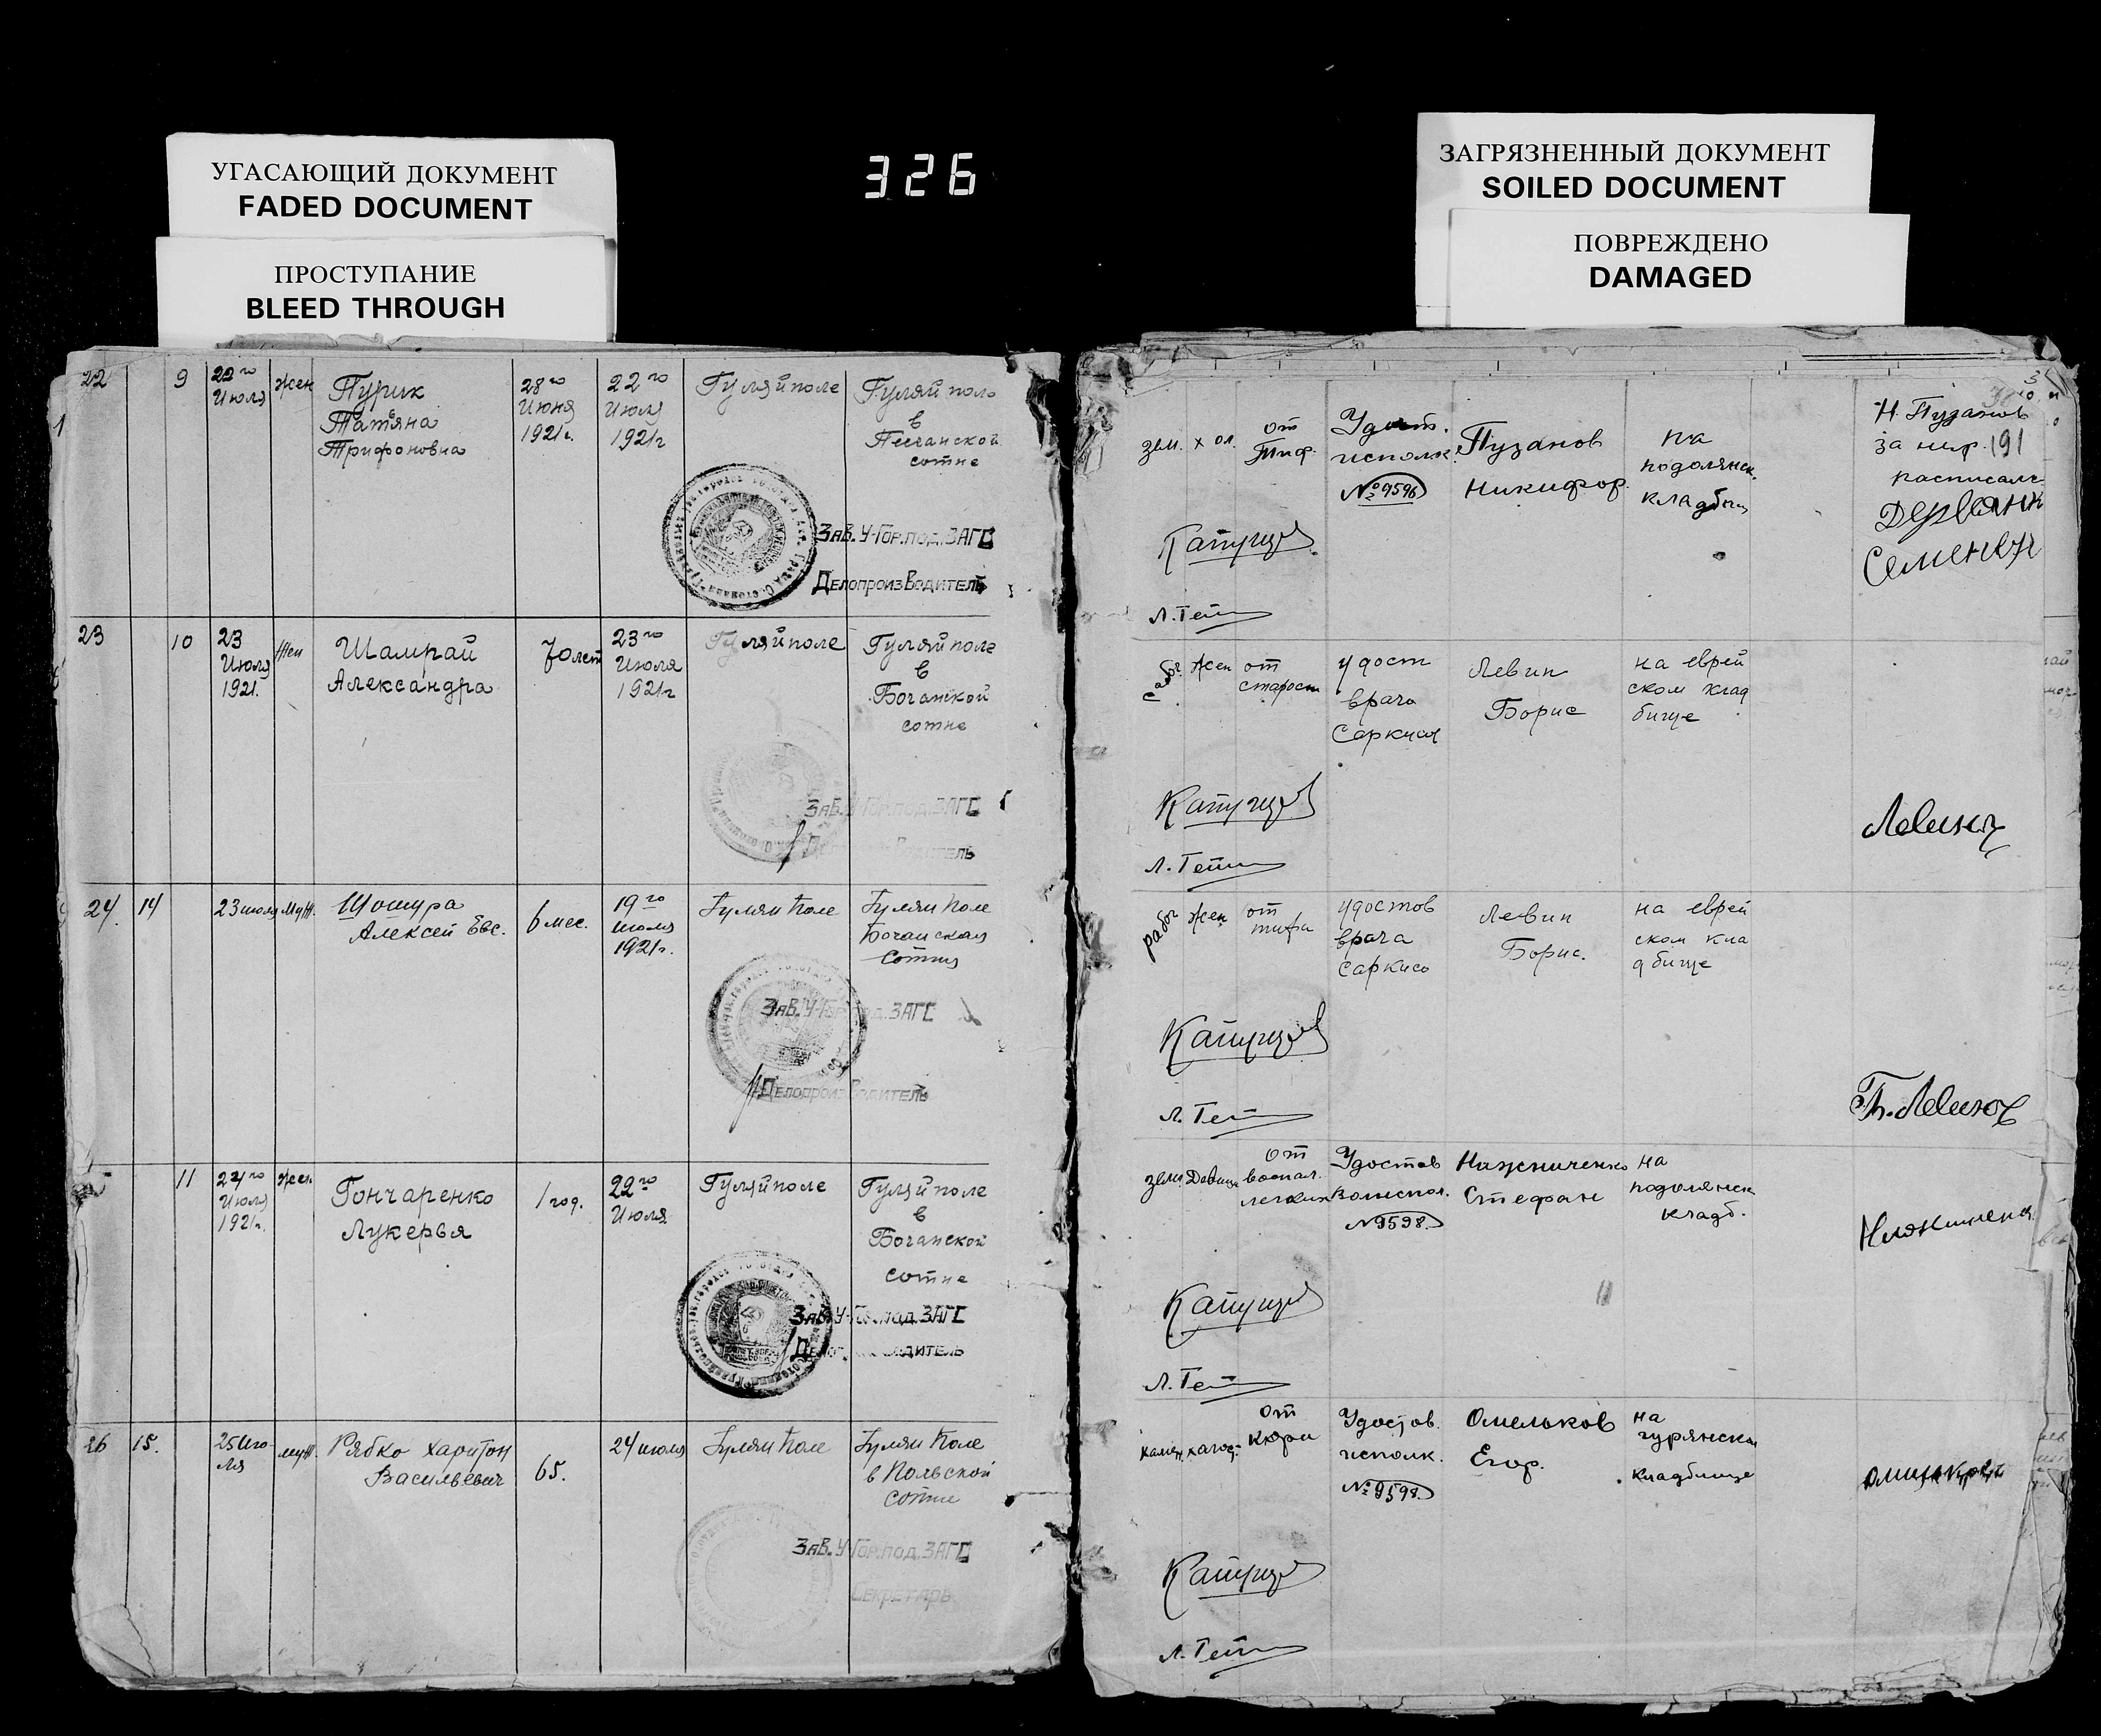 УГАСАЮЩИЙ ДОКУМЕНТ
FADED DOCUMENT
ПРОСТУПАНИЕ
BLEED THROUGH
326
ЗАГРЯЗНЕННЫЙ ДОКУМЕНТ
SOILED DOCUMENT
ПОВРЕЖДЕНО
DAMAGED
22
9
22го
Июля
жен
Пурик
Татяна
Трифоновна
28го
Июня
1921г.
22го
Июля
1921г
Гуляйполе
Гуляй поле
в
Песчанской
сотне
Зав. У-Гор.под.ЗАГС
Делопроизводитель
23
10
23
Июля
1921.
жен
Шамрай
Александра
70 лет
23го
Июля
1921г
Гуляйполе
Гуляйполе
в
Бочанской
сотне
Зав. У-Гор.под.ЗАГС
Делопроизводитель
24.
14
23 июля
муж.
Шошура
Алексей Евс.
6 мес.
19го
июля
1921г.
Гуляй Поле
Гуляй Поле
Бочанская
сотня
Зав. У-Гор.под.ЗАГС
Делопроизводитель
11
24го
Июля
1921г.
жен.
Гончаренко
Лукерья
1 год.
22го
Июля
Гуляйполе
Гуляйполе
в
Бочанской
сотне
Зав. У-Гор.под.ЗАГС
Делопроизводитель
26
15.
25 Ию-
ля
муж.
Рябко Харитон
Васильевич
65.
24 июля
Гуляй Поле
Гуляй Поле
в Польской
сотне
Зав. У-Гор.под.ЗАГС
Секретарь
зем.
х ол.
от
тиф.
Удост.
исполк.
№ 9596
Пузанов
Никифор.
на
подолянск.
кладбищ
Н. Пузанов
за нир. 191
расписалс
Семенвн
Л. Гет
рабоч
жен
от
старости
удост
врача
Саркися
Левин
Борис
на еврей
ском клад
бище
Левин
Л. Гет
рабоч
жен
от
тифа
удостов
врача
Саркисо
Левин
Борис.
на еврей
ском кла
дбище
Л. Гет
зем.
Девица
от
воспал.
легких
Удостов
№ 9598.
Стефан
на
подолянск
кладб.
Л. Гет
камен.
холос-
от
Удостов.
исполк.
№ 9598.
Омельков
Егор.
на
гурянском
кладбище
Л. Гет